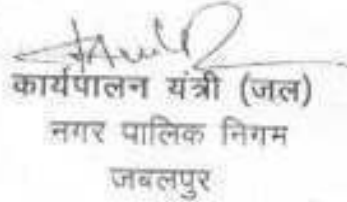 कार्यपालन यंत्री (जल)
नगर पालिक निगम
जबलपुर